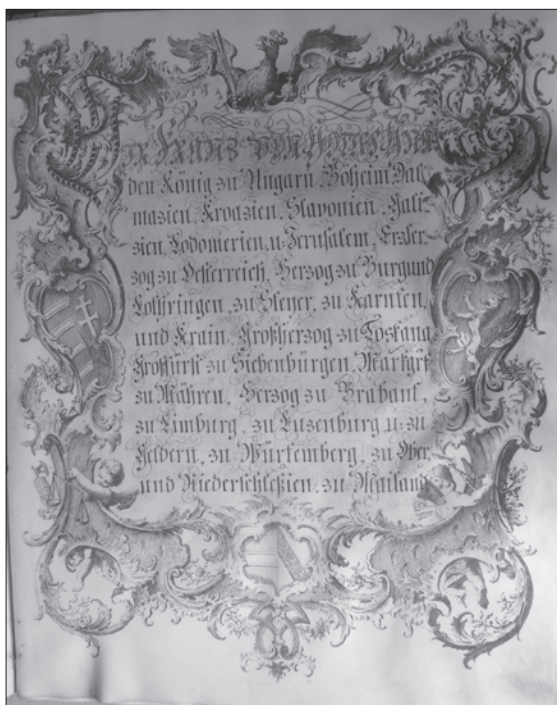 Wir Franz von Gottes Gna
den König zu Ungarn, Böheim, Dal=
mazien, Kroazien, Slavonien, Gali=
zien, Lodomerien, u. Jerusalem, Erzher=
zog zu Oesterreich, Herzog zu Burgund
Lothringen, zu Steyer, zu Kärnten,
und Krain, Großherzog zu Toskana
Großfürst zu Siebenbürgen, Markgrf
zu Mähren, Herzog zu Brabant,
zu Limburg, zu Luzenburg u: zu
Geldern, zu Würtemberg, zu Ober
und Niederschleßien, zu Mailand